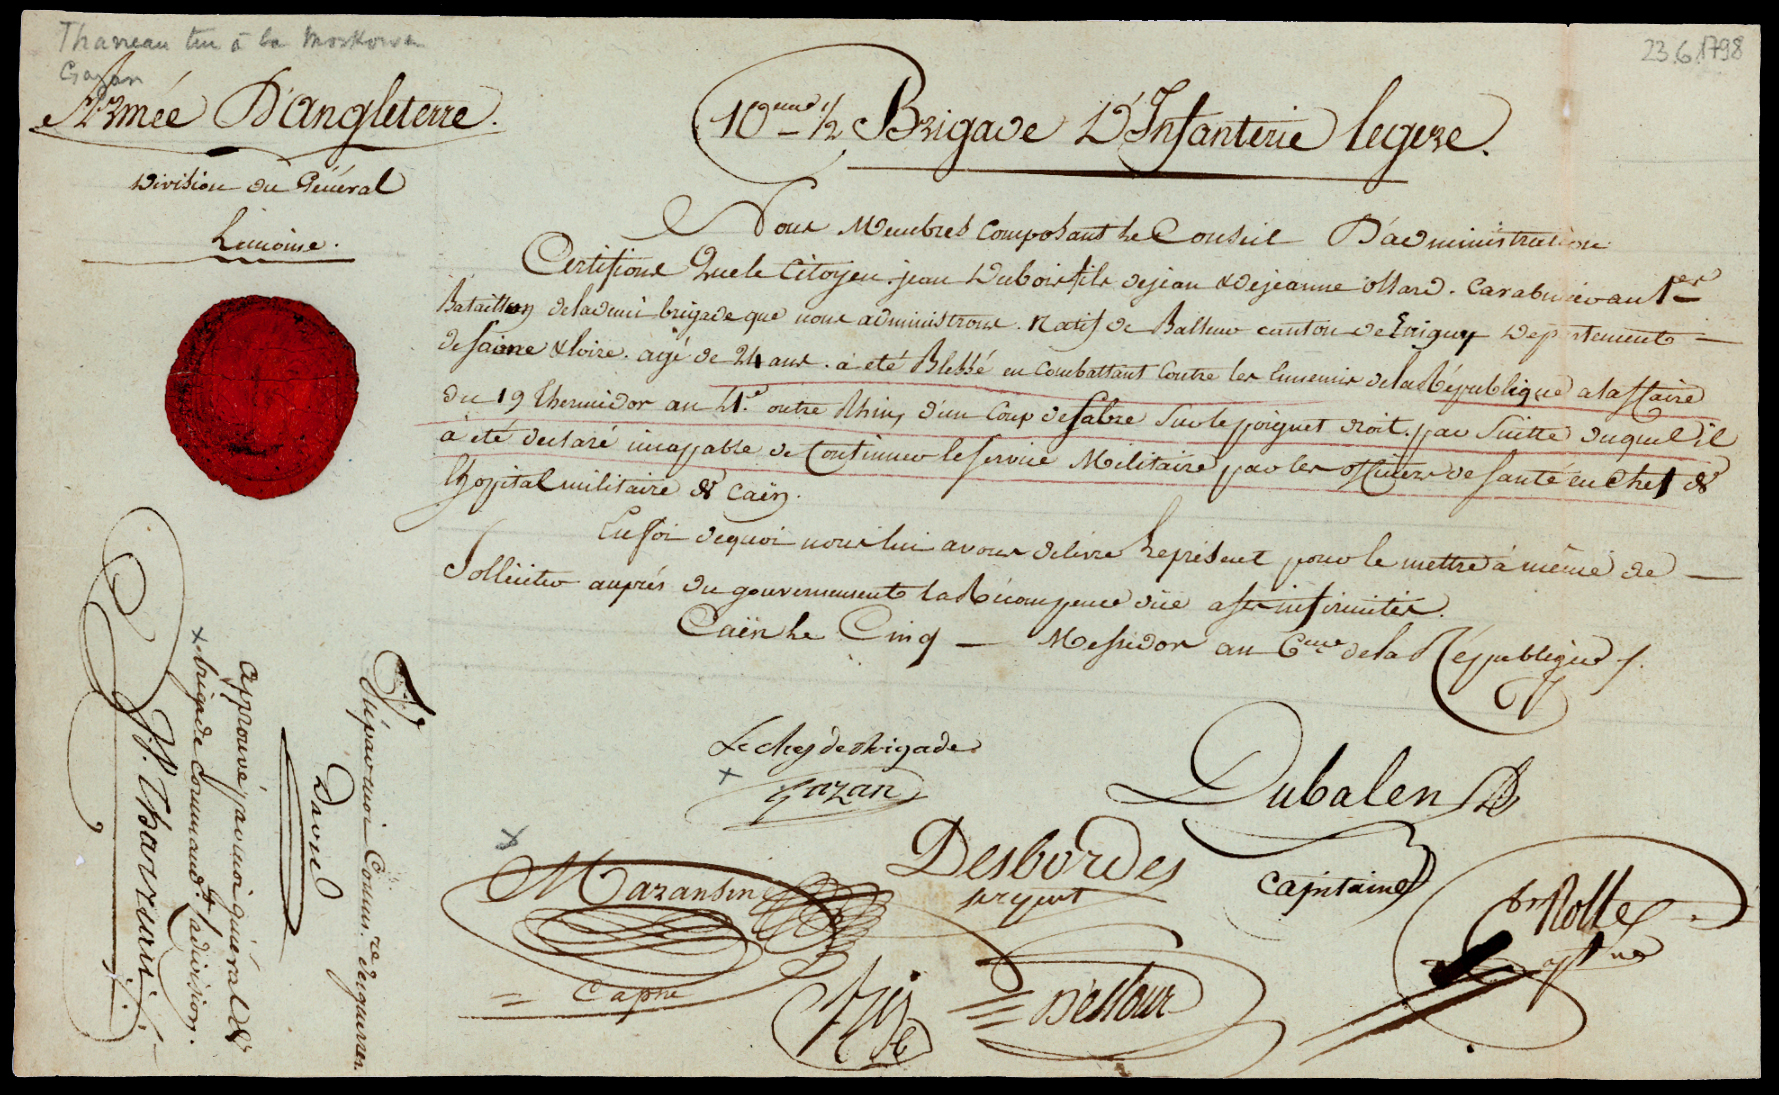 Tharreau tué à la Moskowa
Gazan
23.6.1798
Armée D'Angleterre.
Division du Général
Limoine.
10eme 1/2 Brigade D'Infanterie legere.
Nous Membres Composant Le Conseil D'administration
Certifions Que le Citoyen jean Dubois fils de jean & de jeanne ollard. Carabinier au 1er
Bataillon de la demi brigade que nous administrons. Natif de Balleur canton de Erigny Departement
de saone & loire. agé de 24 ans. à été Blessé en Combattant Contre les Ennemis de la République a laffaire
du 19 Thermidor an 4e. outre Rhin, d'un Coup de sabre sur le poignet droit. par Suitte duquel il
à été declaré incapable de Continuer le service Militaire par les officiers de santé en Chef de
lhopital militaire de Caën.
En foi de quoi nous lui avons délivré Le présent pour le mettre à même de
Solliciter auprés du gouvernement la Récompense düe a ses infirmités.
Caën Le Cinq Messidor an 6eme de la République /.
Le chef de Brigade
Gazan
Dubalen
Capitaine
Desbordes
sergent
Maransin
Capne
Rolle
Dessour
Vu par moi Commre des guerres
David
Approuvé par moi général de
brigade Command.t la division.
J. V. Tharreau